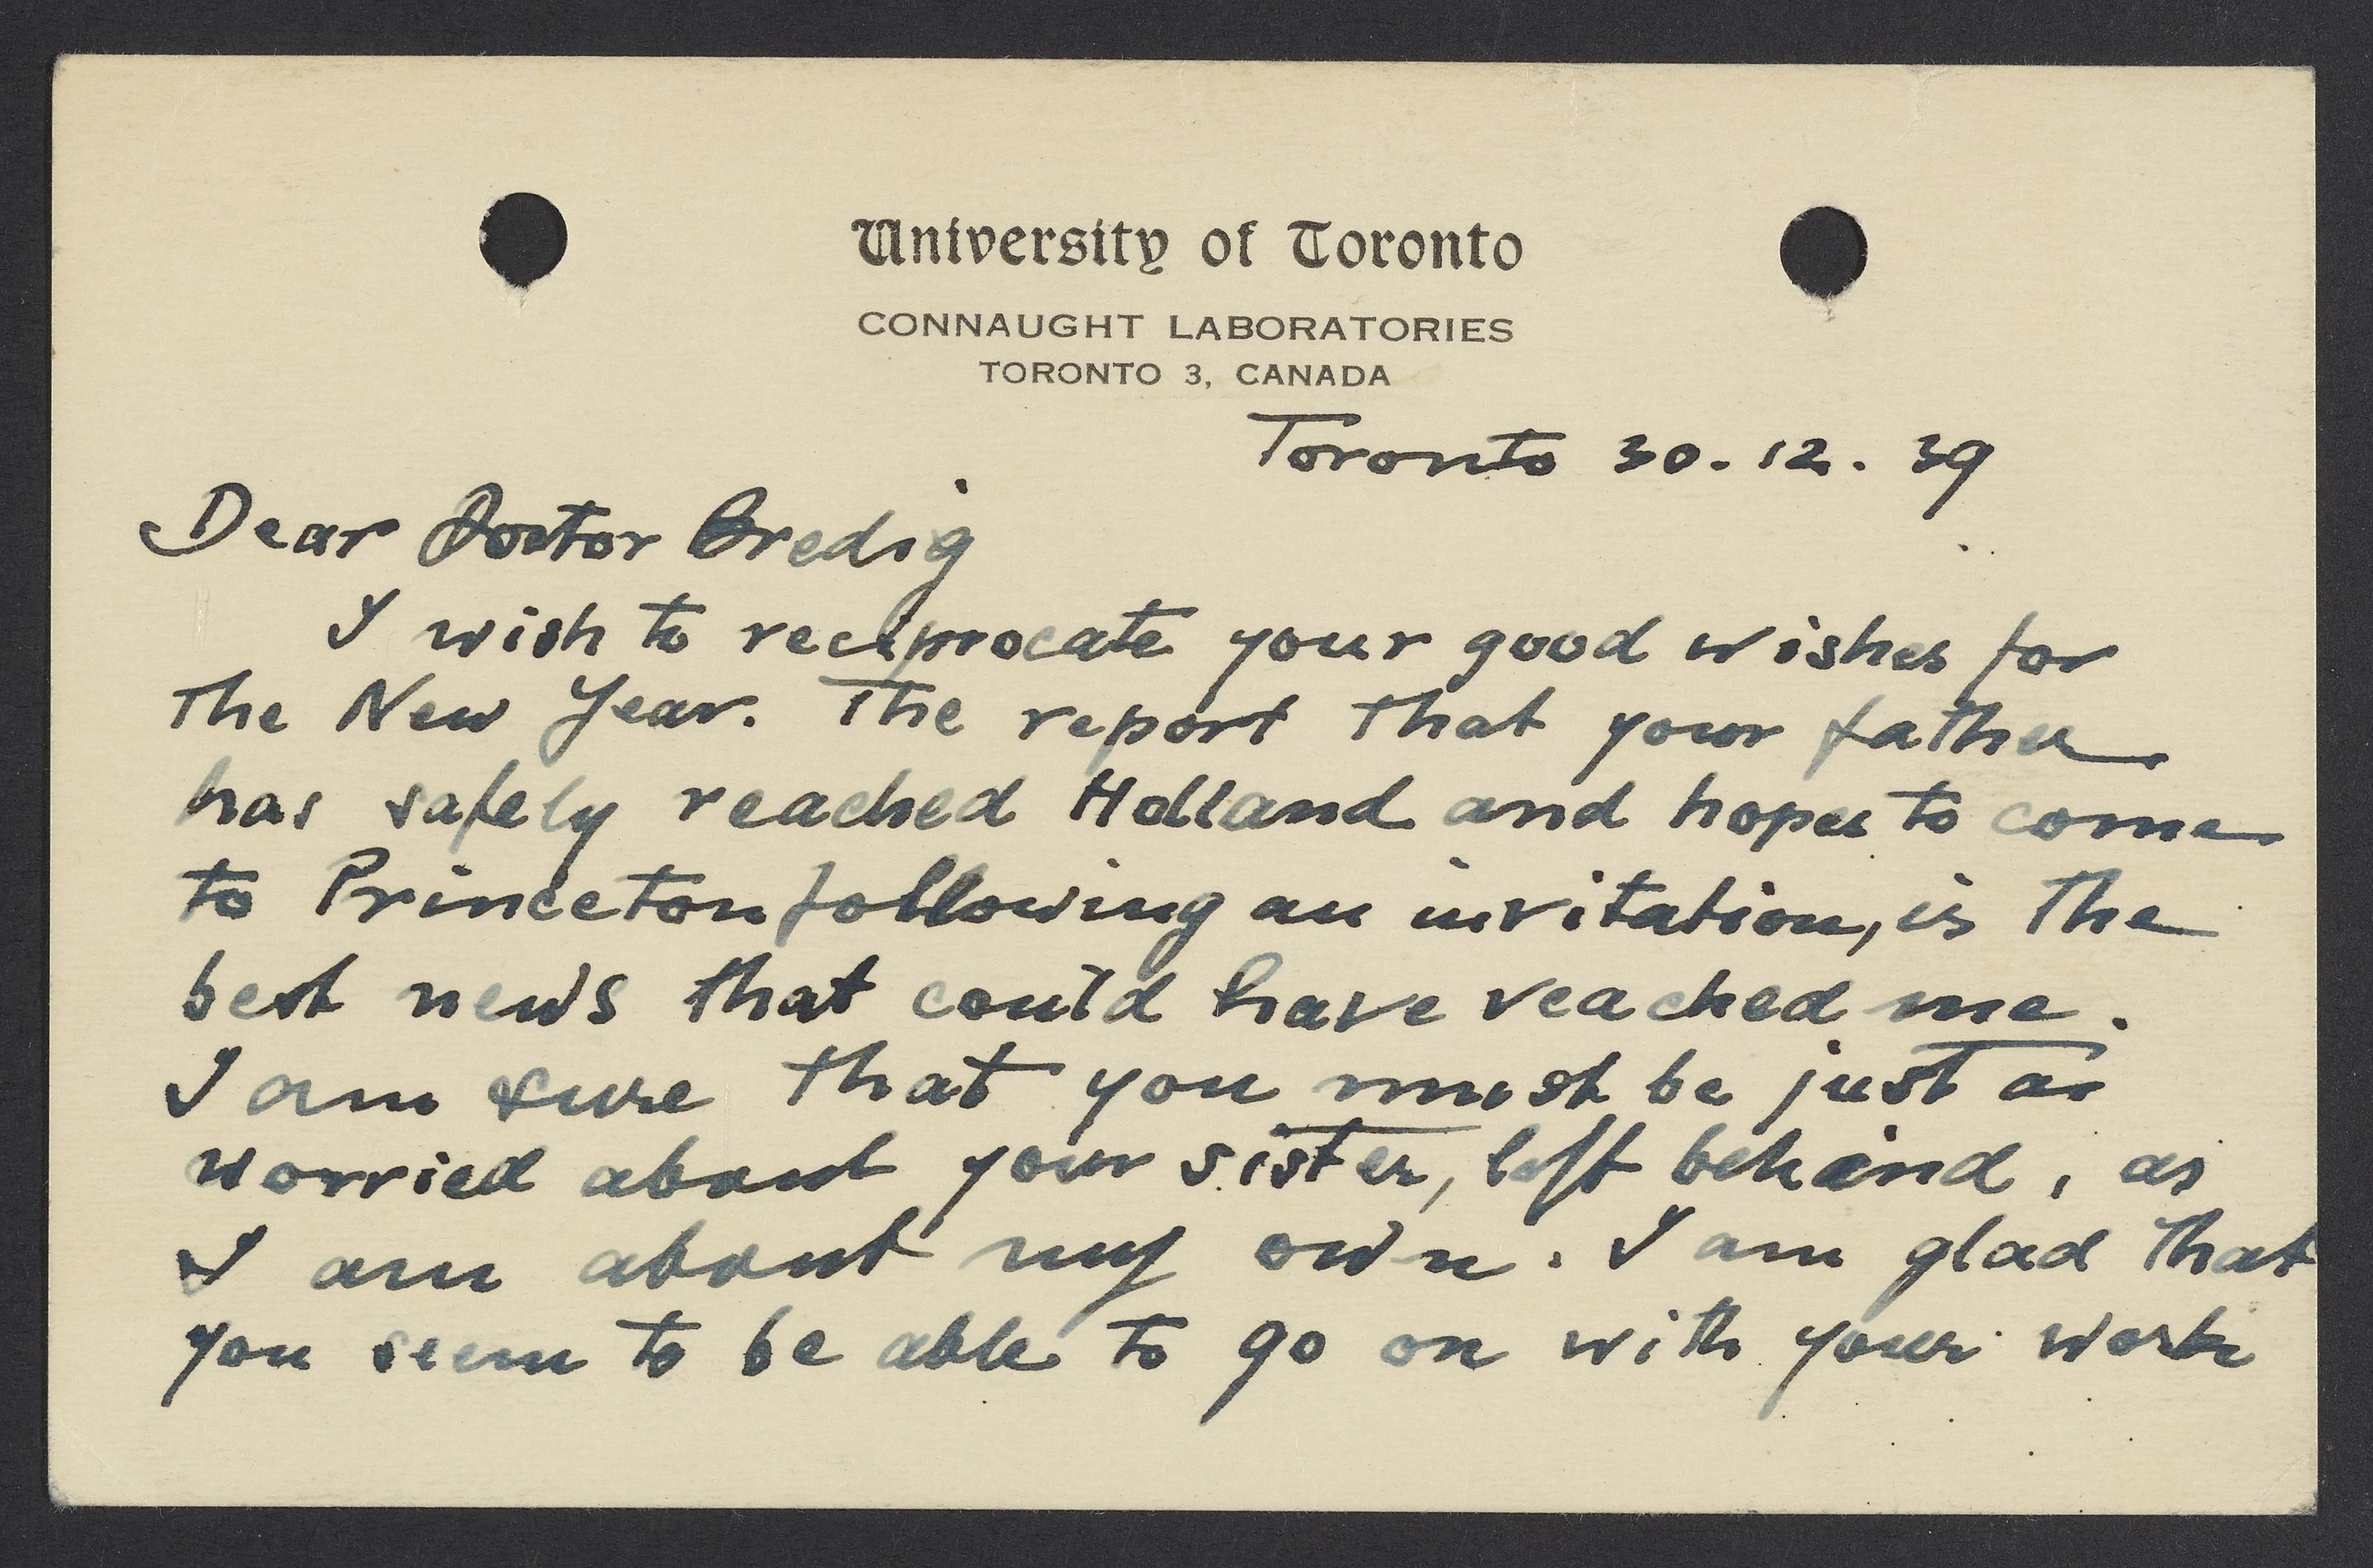 University of Toronto
CONNAUGHT LABORATORIES
TORONTO 3, CANADA
Toronto 30.12.39
Dear Doctor Bredig
I wish to reciprocate your good wishes for
the New Year. The report that your father
has safely reached Holland and hopes to come
to Princeton following an invitation, is the
best news that could have reached me.
I am sure that you must be just as
worried about your sister, left behind, as
I am about my own. I am glad that
you seem to be able to go on with your work